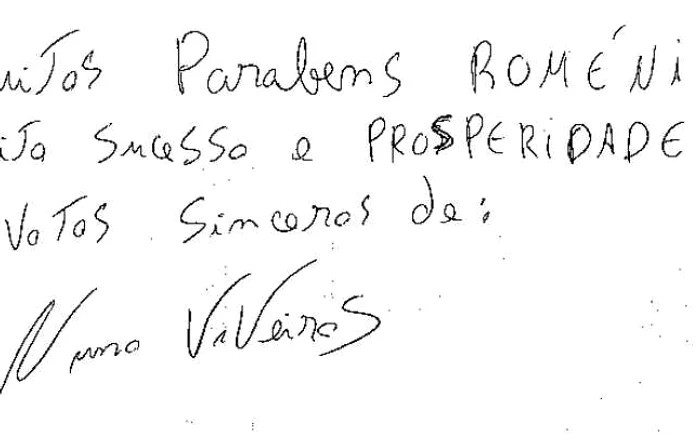 uitos Parabens ROMÉNI
ito Sucesso e PROSPERIDADE
votos sinceros de:
Nuno ViVeiros